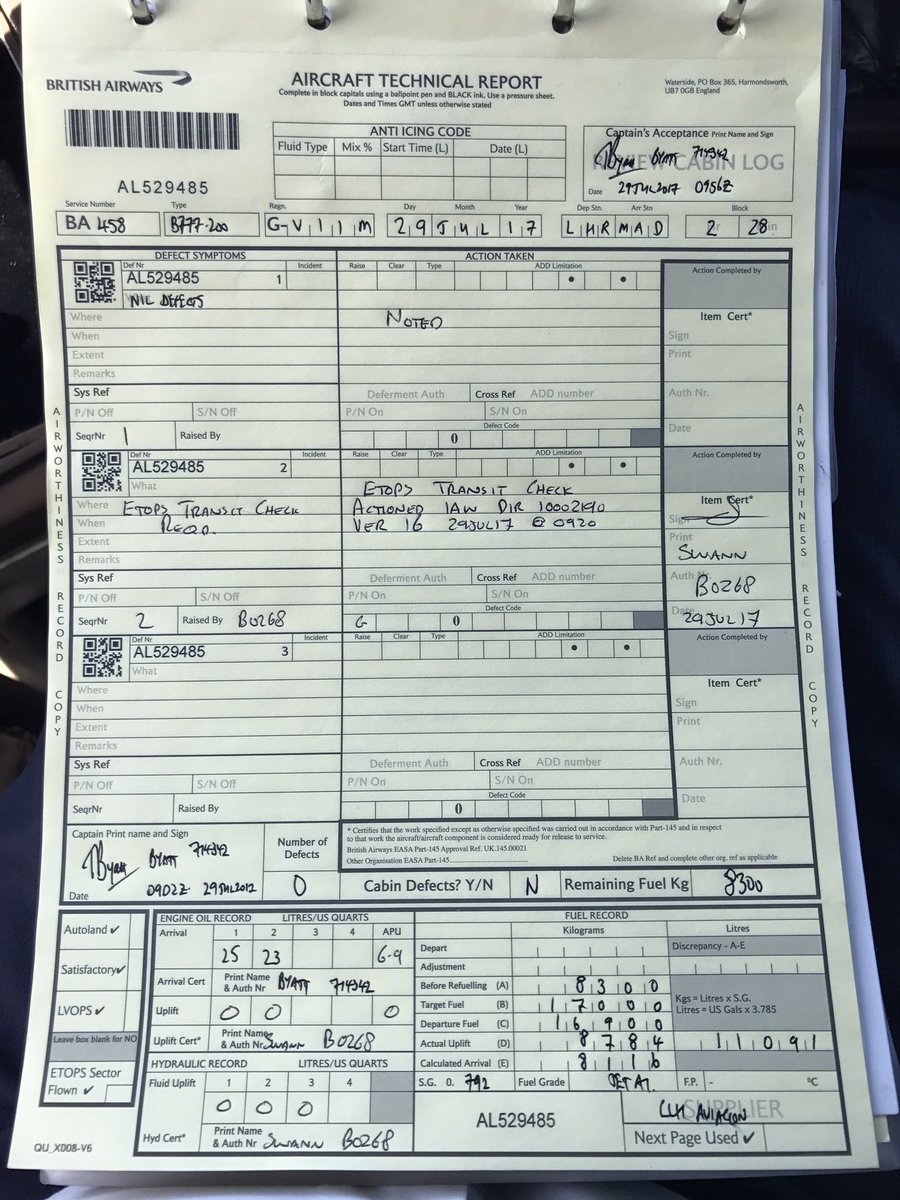 BRITISH AIRWAYS
AIRCRAFT TECHNICAL REPORT
Complete in block capitals using a ballpoint pen and BLACK ink. Use a pressure sheet.
Dates and Times GMT unless otherwise stated
Waterside, PO Box 365, Harmondsworth,
UB7 0GB England
AL529485
ANTI ICING CODE
Fluid Type Mix % Start Time (L) Date (L)
Captain's Acceptance Print Name and Sign
BYATT 714342
REVIEW CABIN LOG
Date 29JUL2017 0956Z
Service Number Type Regn. Day Month Year Dep Stn. Arr Stn Block
BA 458 B777-200 G-VIIM 29 JUL 17 LHR MAD 2 28
DEFECT SYMPTOMS ACTION TAKEN
Def Nr Incident Raise Clear Type ADD Limitation Action Completed by
AL529485 1
NIL DEFECTS
NOTED
Where
When
Extent
Remarks
Item Cert*
Sign
Print
Sys Ref Deferment Auth Cross Ref ADD number Auth Nr.
P/N Off S/N Off P/N On S/N On
Defect Code
SeqrNr 1 Raised By 0 Date
Def Nr Incident Raise Clear Type ADD Limitation Action Completed by
AL529485 2
What
ETOPS TRANSIT CHECK
Where ETOPS TRANSIT CHECK ACTIONED IAW DIR 10002190
When REQD. VER 16 29JUL17 @ 0920
Extent
Remarks
Item Cert*
Sign
Print
SWANN
Sys Ref Deferment Auth Cross Ref ADD number Auth Nr
B0268
P/N Off S/N Off P/N On S/N On
Defect Code
SeqrNr 2 Raised By B0268 G 0 Date 29JUL17
Def Nr Incident Raise Clear Type ADD Limitation Action Completed by
AL529485 3
What
Where
When
Extent
Remarks
Item Cert*
Sign
Print
Sys Ref Deferment Auth Cross Ref ADD number Auth Nr.
P/N Off S/N Off P/N On S/N On
Defect Code
SeqrNr Raised By 0 Date
AIRWORTHINESS RECORD COPY
AIRWORTHINESS RECORD COPY
Captain Print name and Sign
BYATT 714342
Date 0902Z 29JUL2017
Number of Defects
0
* Certifies that the work specified except as otherwise specified was carried out in accordance with Part-145 and in respect
to that work the aircraft/aircraft component is considered ready for release to service.
British Airways EASA Part-145 Approval Ref. UK.145.00021
Other Organisation EASA Part-145 Delete BA Ref and complete other org. ref as applicable
Cabin Defects? Y/N N Remaining Fuel Kg 8300
Autoland ✔
Satisfactory ✔
LVOPS ✔
Leave box blank for NO
ETOPS Sector
Flown ✔
ENGINE OIL RECORD LITRES/US QUARTS
Arrival 1 2 3 4 APU
25 23 6-9
Arrival Cert Print Name & Auth Nr BYATT 714342
Uplift 0 0 0
Uplift Cert* Print Name & Auth Nr SWANN B0268
HYDRAULIC RECORD LITRES/US QUARTS
Fluid Uplift 1 2 3 4
0 0 0
Hyd Cert* Print Name & Auth Nr SWANN B0268
FUEL RECORD
Kilograms Litres
Depart Discrepancy - A-E
Adjustment
Before Refuelling (A) 8300
Target Fuel (B) 17000
Kgs = Litres x S.G.
Litres = US Gals x 3.785
Departure Fuel (C) 16900
Actual Uplift (D) 8784 11091
Calculated Arrival (E) 8116
S.G. 0. 792 Fuel Grade JET A1 F.P. - °C
AL529485
SUPPLIER
CLH AVIACION
Next Page Used ✔
QU_X008-V6